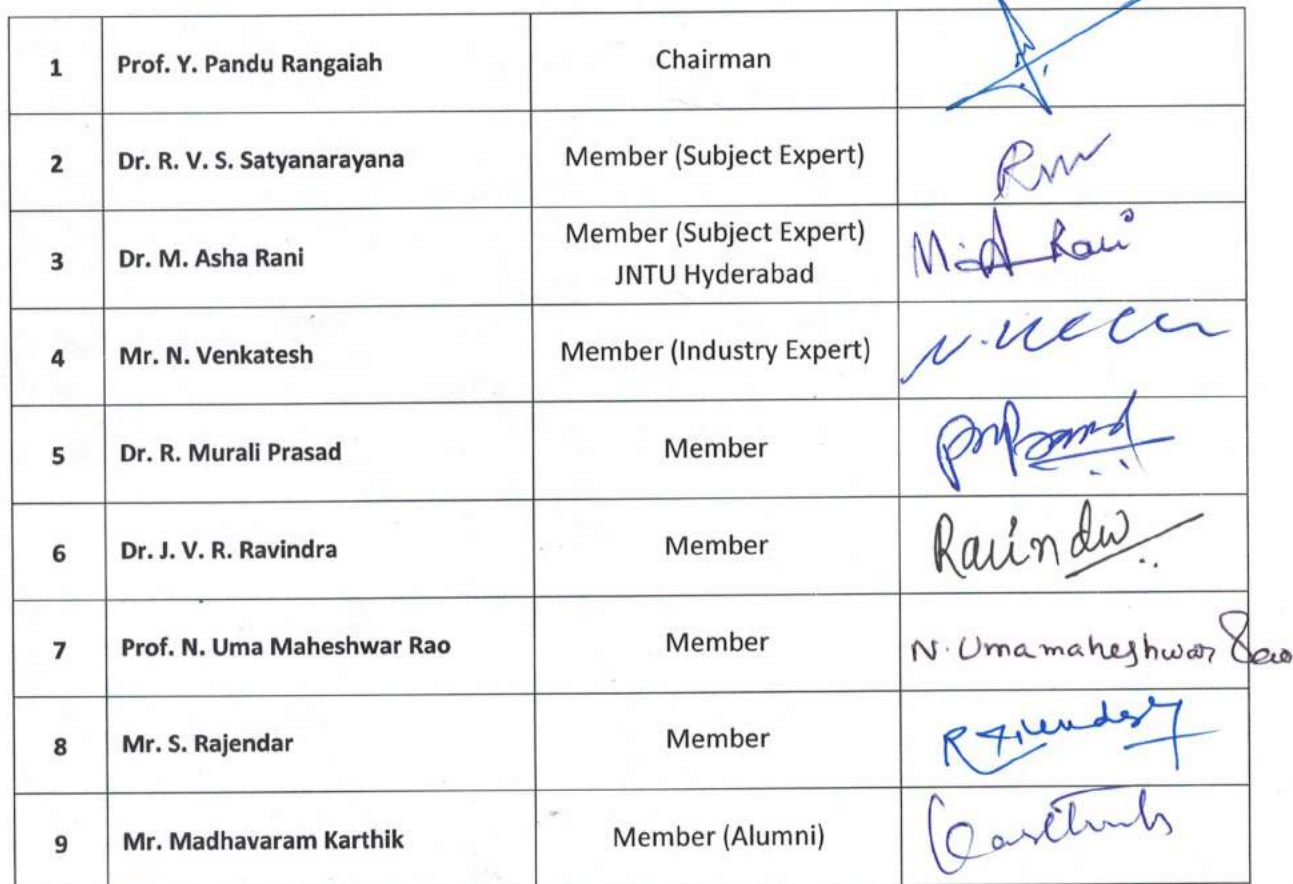 1 Prof. Y. Pandu Rangaiah Chairman
2 Dr. R. V. S. Satyanarayana Member (Subject Expert)
3 Dr. M. Asha Rani Member (Subject Expert)
JNTU Hyderabad M. A Rani
4 Mr. N. Venkatesh Member (Industry Expert)
5 Dr. R. Murali Prasad Member
6 Dr. J. V. R. Ravindra Member Ravindra
7 Prof. N. Uma Maheshwar Rao Member N. Umamaheshwar Rao
8 Mr. S. Rajendar Member
9 Mr. Madhavaram Karthik Member (Alumni)